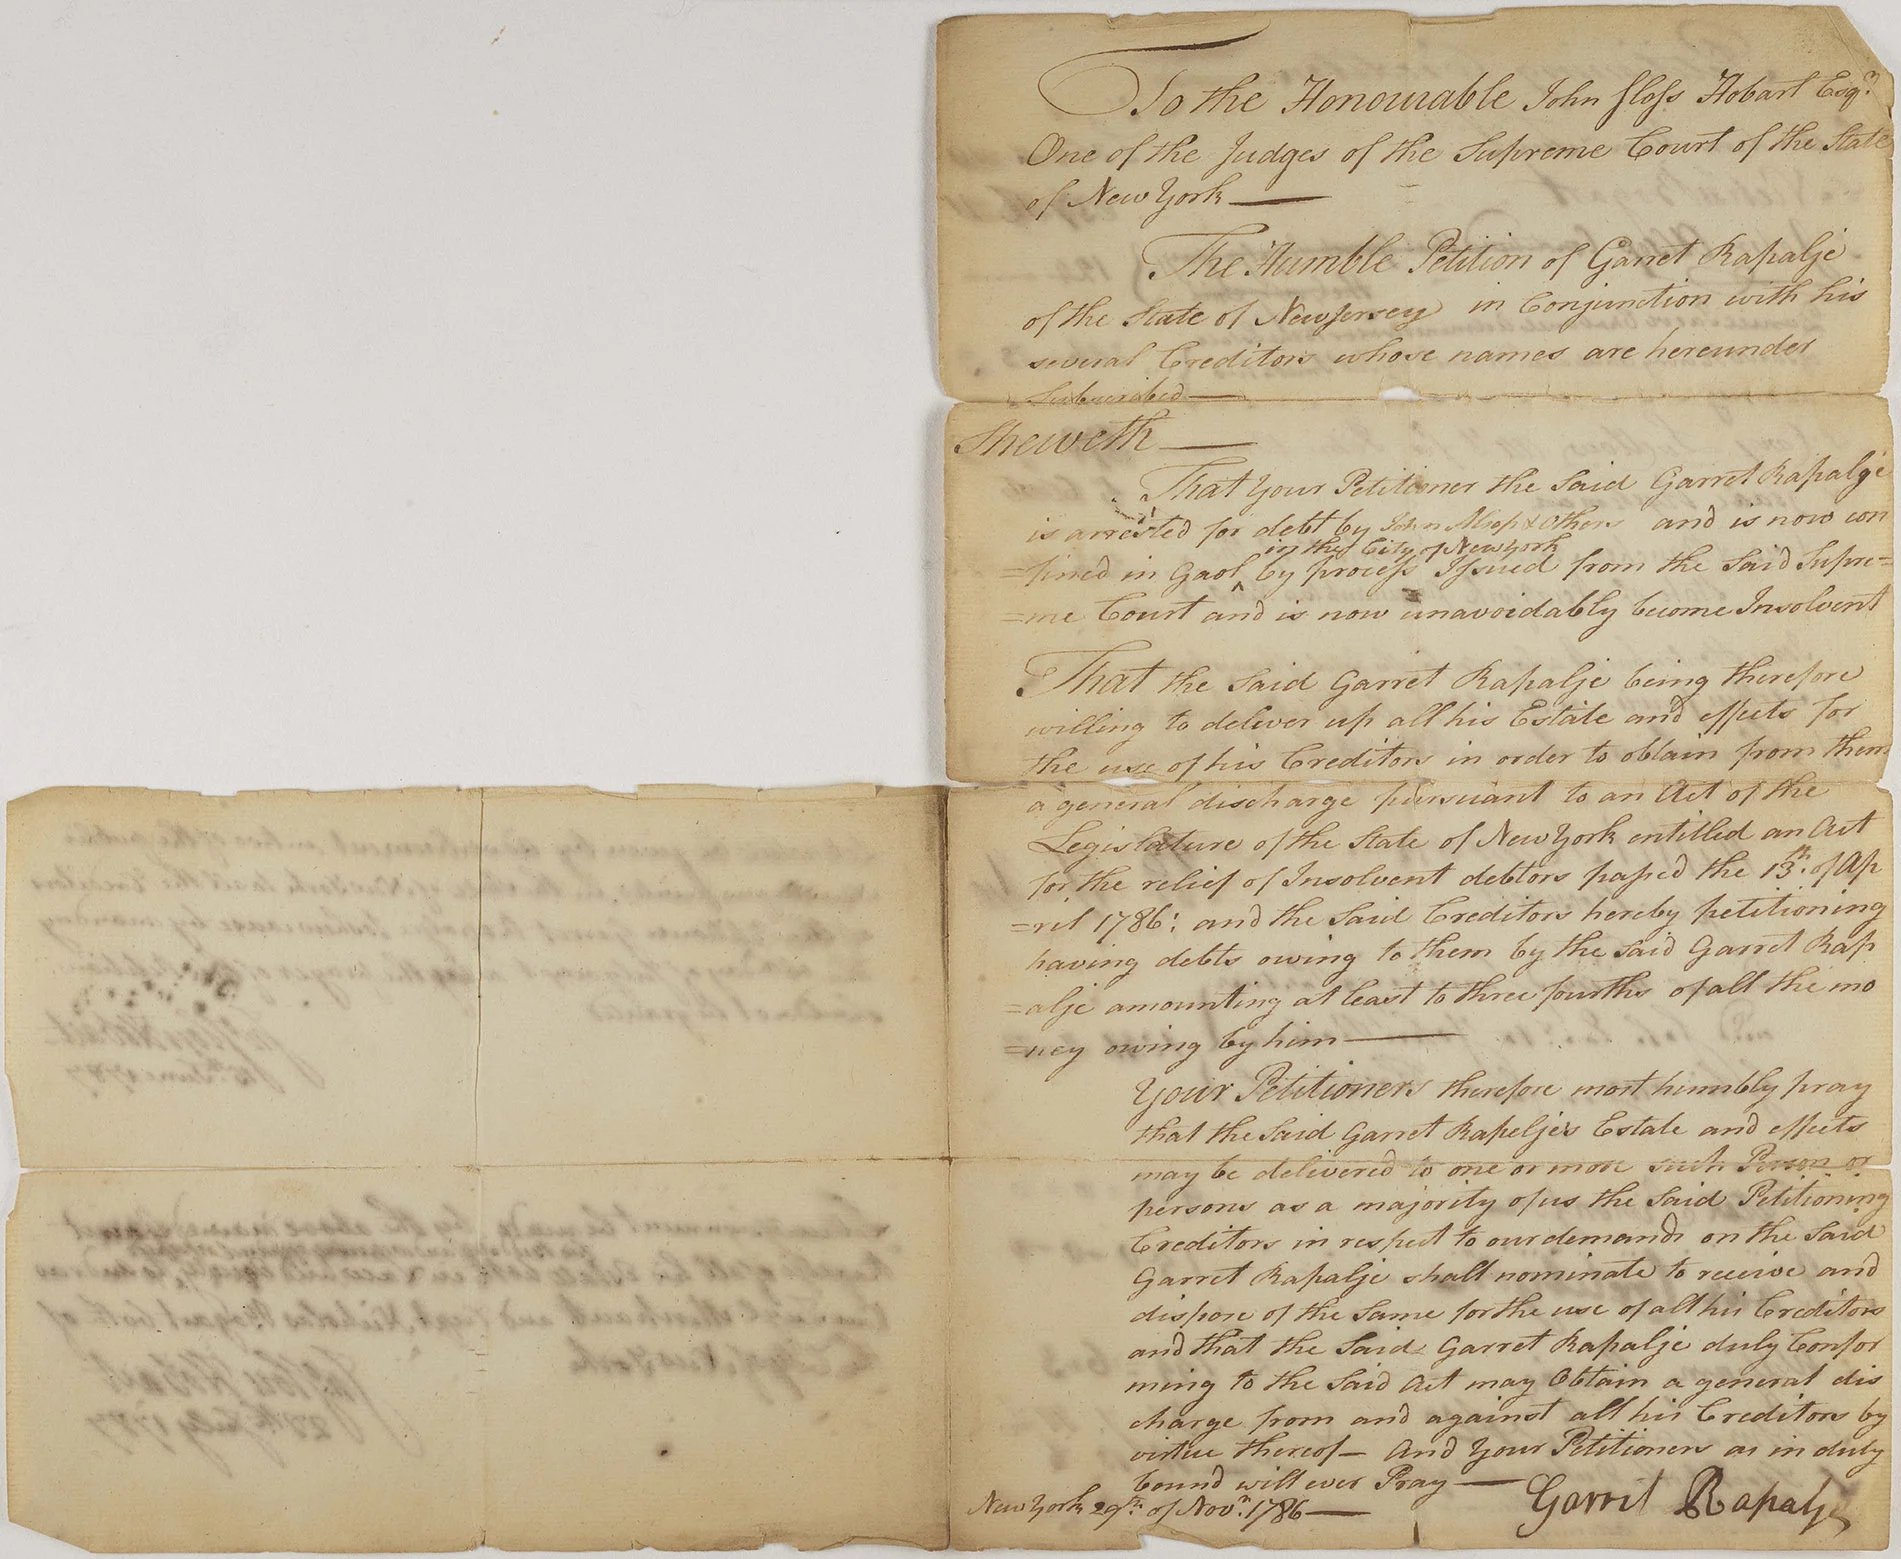 To the Honourable John Sloss Hobart Esqr.
One of the Judges of the Supreme Court of the State
of New York —
The Humble Petition of Garret Rapalje
of the State of New Jersey in Conjunction with his
several Creditors whose names are hereunder
Subscribed —
Sheweth —
That Your Petitioner the Said Garret Rapalje
is arrested for debt by John Alsop & Others and is now con
in the City of New York
=fined in Gaol ^ by process Issued from the Said Supre=
=me Court and is now unavoidably become Insolvent
That the Said Garret Rapalje being therefore
willing to deliver up all his Estate and effects for
the use of his Creditors in order to obtain from them
a general discharge pursuant to an Act of the
Legislature of the State of New York entitled an Act
for the relief of Insolvent debtors passed the 13th. of Ap
=ril 1786: and the Said Creditors hereby petitioning
having debts owing to them by the Said Garret Rap
=alje amounting at least to three fourths of all the mo
=ney owing by him —
Your Petitioners therefore most humbly pray
that the Said Garret Rapelje's Estate and effects
may be delivered to one or more such Person or
persons as a majority of us the Said Petitioning
Creditors in respect to our demands on the Said
Garret Rapalje shall nominate to receive and
dispose of the Same for the use of all his Creditors
and that the Said Garret Rapalje duly Confor
ming to the Said Act may Obtain a general dis
charge from and against all his Creditors by
virtue thereof — And Your Petitioners as in duty
bound will ever Pray —
New York 29th. of Novr. 1786 —
Garrit Rapalje